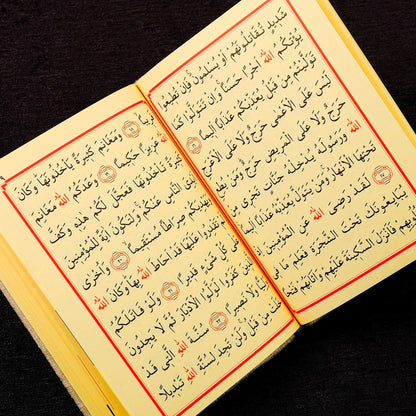 شَدِيدٍ تُقَاتِلُونَهُمْ أَوْ يُسْلِمُونَ فَإِنْ تُطِيعُوا
يُؤْتِكُمُ اللهُ أَجْرًا حَسَنًا وَإِنْ تَتَوَلَّوْا كَمَا
تَوَلَّيْتُمْ مِنْ قَبْلُ يُعَذِّبْكُمْ عَذَابًا أَلِيمًا ١٦
لَيْسَ عَلَى الْأَعْمَى حَرَجٌ وَلَا عَلَى الْأَعْرَجِ
حَرَجٌ وَلَا عَلَى الْمَرِيضِ حَرَجٌ وَمَنْ يُطِعِ
اللهَ وَرَسُولَهُ يُدْخِلْهُ جَنَّاتٍ تَجْرِي مِنْ
تَحْتِهَا الْأَنْهَارُ وَمَنْ يَتَوَلَّ يُعَذِّبْهُ عَذَابًا أَلِيمًا
١٧ لَقَدْ رَضِيَ اللهُ عَنِ الْمُؤْمِنِينَ إِذْ
يُبَايِعُونَكَ تَحْتَ الشَّجَرَةِ فَعَلِمَ مَا فِي
قُلُوبِهِمْ فَأَنْزَلَ السَّكِينَةَ عَلَيْهِمْ وَأَثَابَهُمْ فَتْحًا
قَرِيبًا ١٨ وَمَغَانِمَ كَثِيرَةً يَأْخُذُونَهَا وَكَانَ
اللهُ عَزِيزًا حَكِيمًا ١٩ وَعَدَكُمُ اللهُ مَغَانِمَ
كَثِيرَةً تَأْخُذُونَهَا فَعَجَّلَ لَكُمْ هَذِهِ وَكَفَّ
أَيْدِيَ النَّاسِ عَنْكُمْ وَلِتَكُونَ آيَةً لِلْمُؤْمِنِينَ
وَيَهْدِيَكُمْ صِرَاطًا مُسْتَقِيمًا ٢٠ وَأُخْرَى
لَمْ تَقْدِرُوا عَلَيْهَا قَدْ أَحَاطَ اللهُ بِهَا وَكَانَ اللهُ
عَلَى كُلِّ شَيْءٍ قَدِيرًا ٢١ وَلَوْ قَاتَلَكُمُ
الَّذِينَ كَفَرُوا لَوَلَّوُا الْأَدْبَارَ ثُمَّ لَا يَجِدُونَ
وَلِيًّا وَلَا نَصِيرًا ٢٢ سُنَّةَ اللهِ الَّتِي قَدْ
خَلَتْ مِنْ قَبْلُ وَلَنْ تَجِدَ لِسُنَّةِ اللهِ تَبْدِيلًا